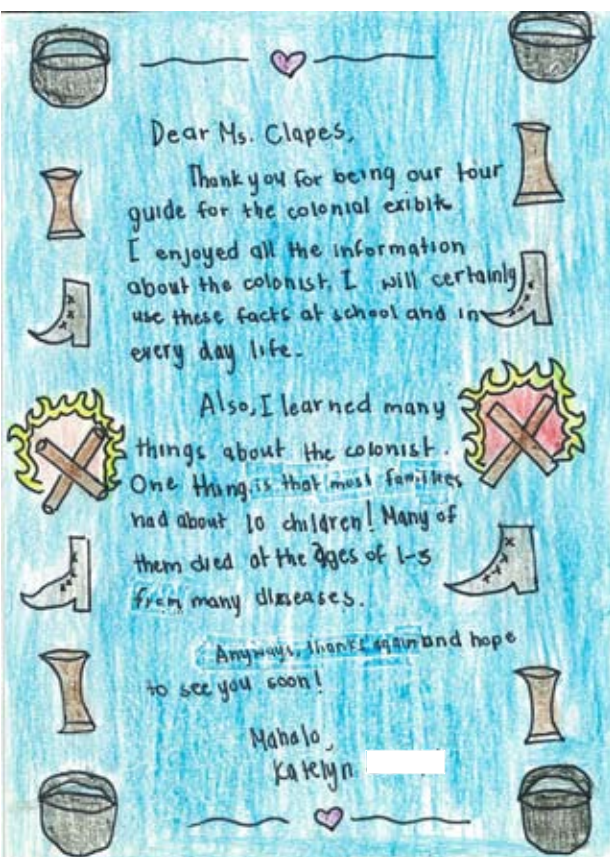 Dear Ms. Clapes,
Thank you for being our tour
guide for the colonial exibit.
I enjoyed all the information
about the colonist. I will certainly
use these facts at school and in
every day life.
Also, I learned many
things about the colonist.
One thing is that most families
had about 10 children! Many of
them died at the ages of 1-5
from many diseases.
Anyways, thanks again and hope
to see you soon!
Mahalo,
Katelyn